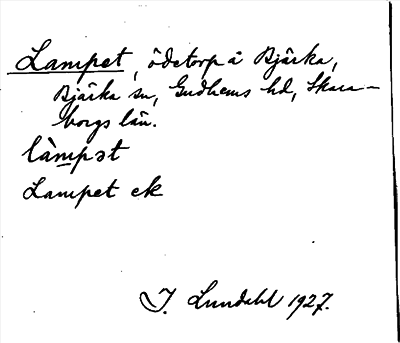 Lampet, ödetorp å Bjärka,
Bjärka sn, Gudhems hd, Skara-
borgs län.
làmpət
Lampet ek
J. Lundahl 1927.